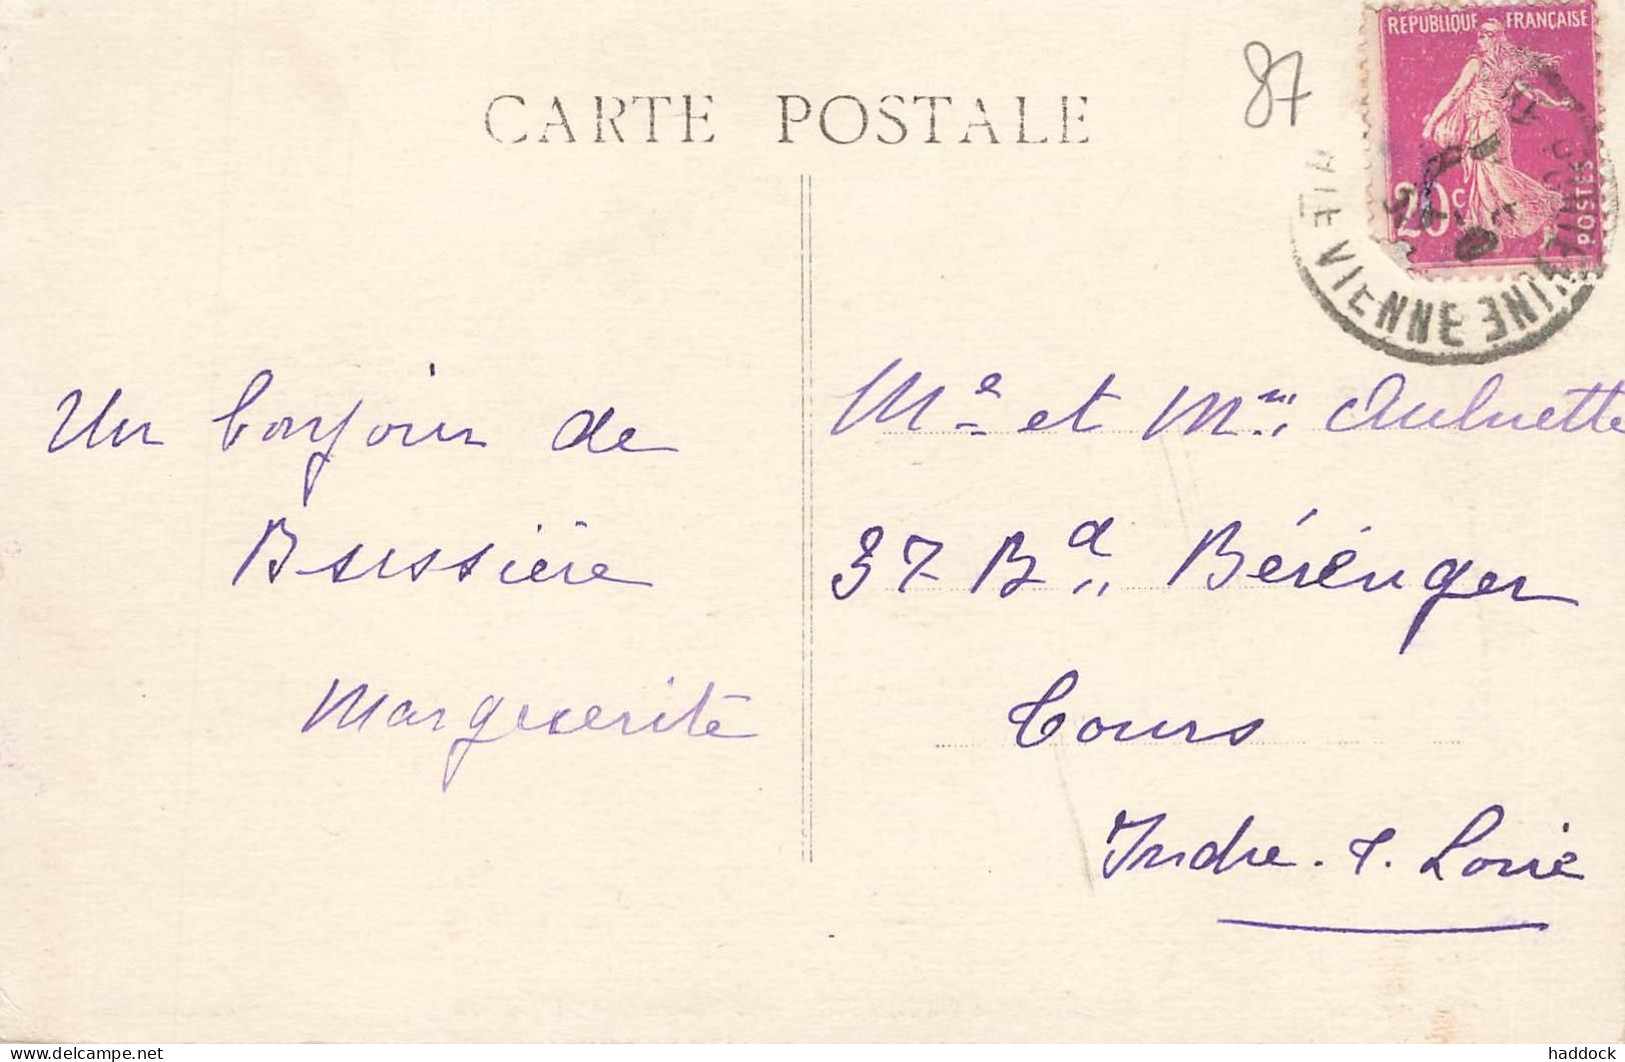 CARTE POSTALE
87
REPUBLIQUE FRANÇAISE
20c
POSTES
VIENNE
Un bonjour de
Bussière
Marguerite
Mr et Mme
37 Bd Bérenger
Tours
Indre - &. Loire
delcampe.net
haddock